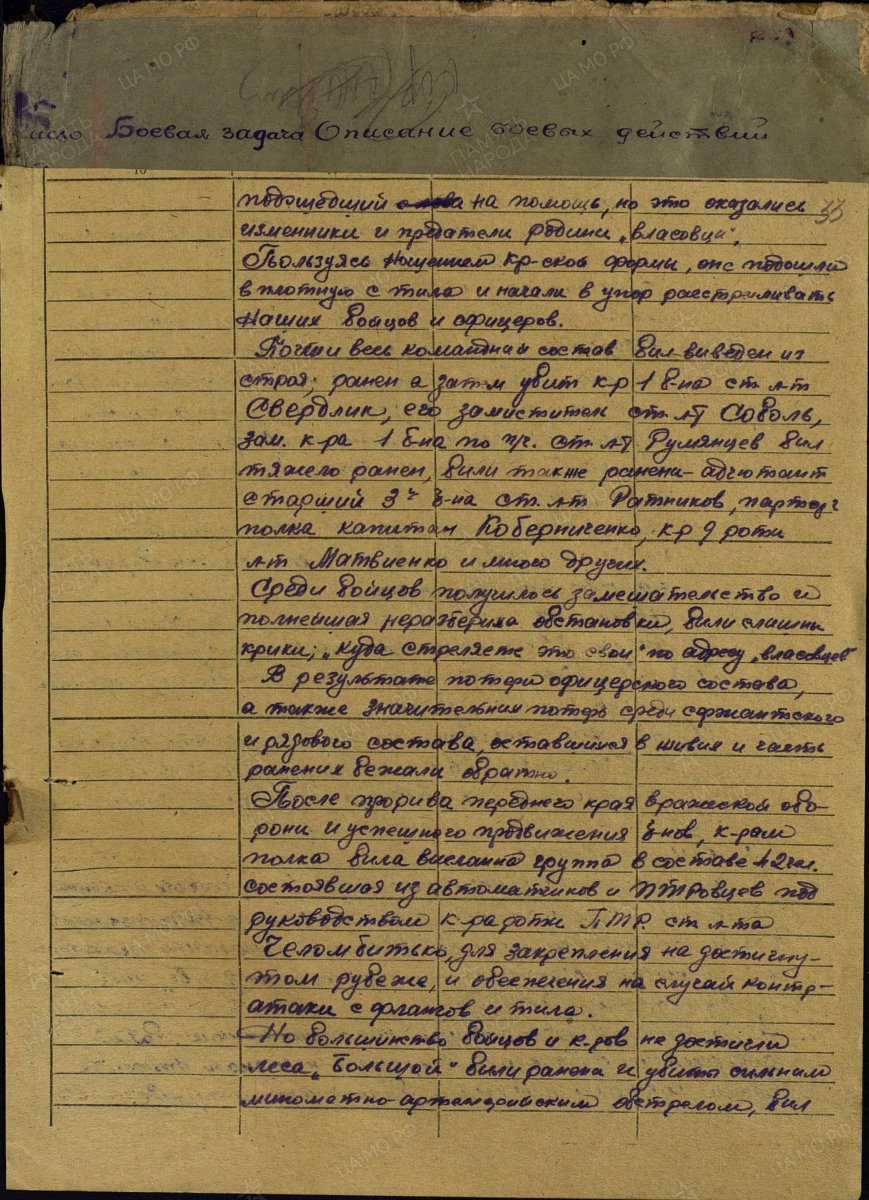 число Боевая задача Описание боевых действий
33
подошедший на помощь, но это оказались
изменники и предатели родины „власовци".
Пользуясь ношением кр-ской формы, они подошли
в плотную с тила и начали в упор расстреливать
наших бойцов и офицеров.
Почти весь командний состав бил виведен из
строя; ранен а затем убит к-р 1 б-на ст. л-т
Свердлик, его заместитель ст. л-т Соболь,
зам. к-ра 1 б-на по п/ч. ст. л-т Румянцев бил
тяжело ранен, били также ранени - адютант
старший 3го б-на ст. л-т Ратников, парторг
полка капитан Коберниченко, к-р 9 роти
л-т Матвиенко и много других.
Среди бойцов получилось замешательство и
полнейшая неразбериха обстановки, били слишни
крики; „куда стреляете это свои" по адресу „власовцев"
В результате потери офицерского состава,
а также значительних потерь среди сержантского
и рядового состава, оставшиеся в живих и часть
ранених бежали обратно.
После прорива переднего края вражеской обо-
рони и успешного продвижения б-нов, к-ром
полка била висланна группа в составе 42 чел.
состоявшая из автоматчиков и ПТРовцев под
руководством к-ра роти ПТР. ст. л-та
Челомбитько, для закрепления на достигну-
том рубеже, и обеспечения на случай контр-
атаки с флангов и тила.
Но большинство бойцов и к-ров не достигли
леса „Большой" били ранени и убиты сильним
минометно-артилерийским обстрелом, бил